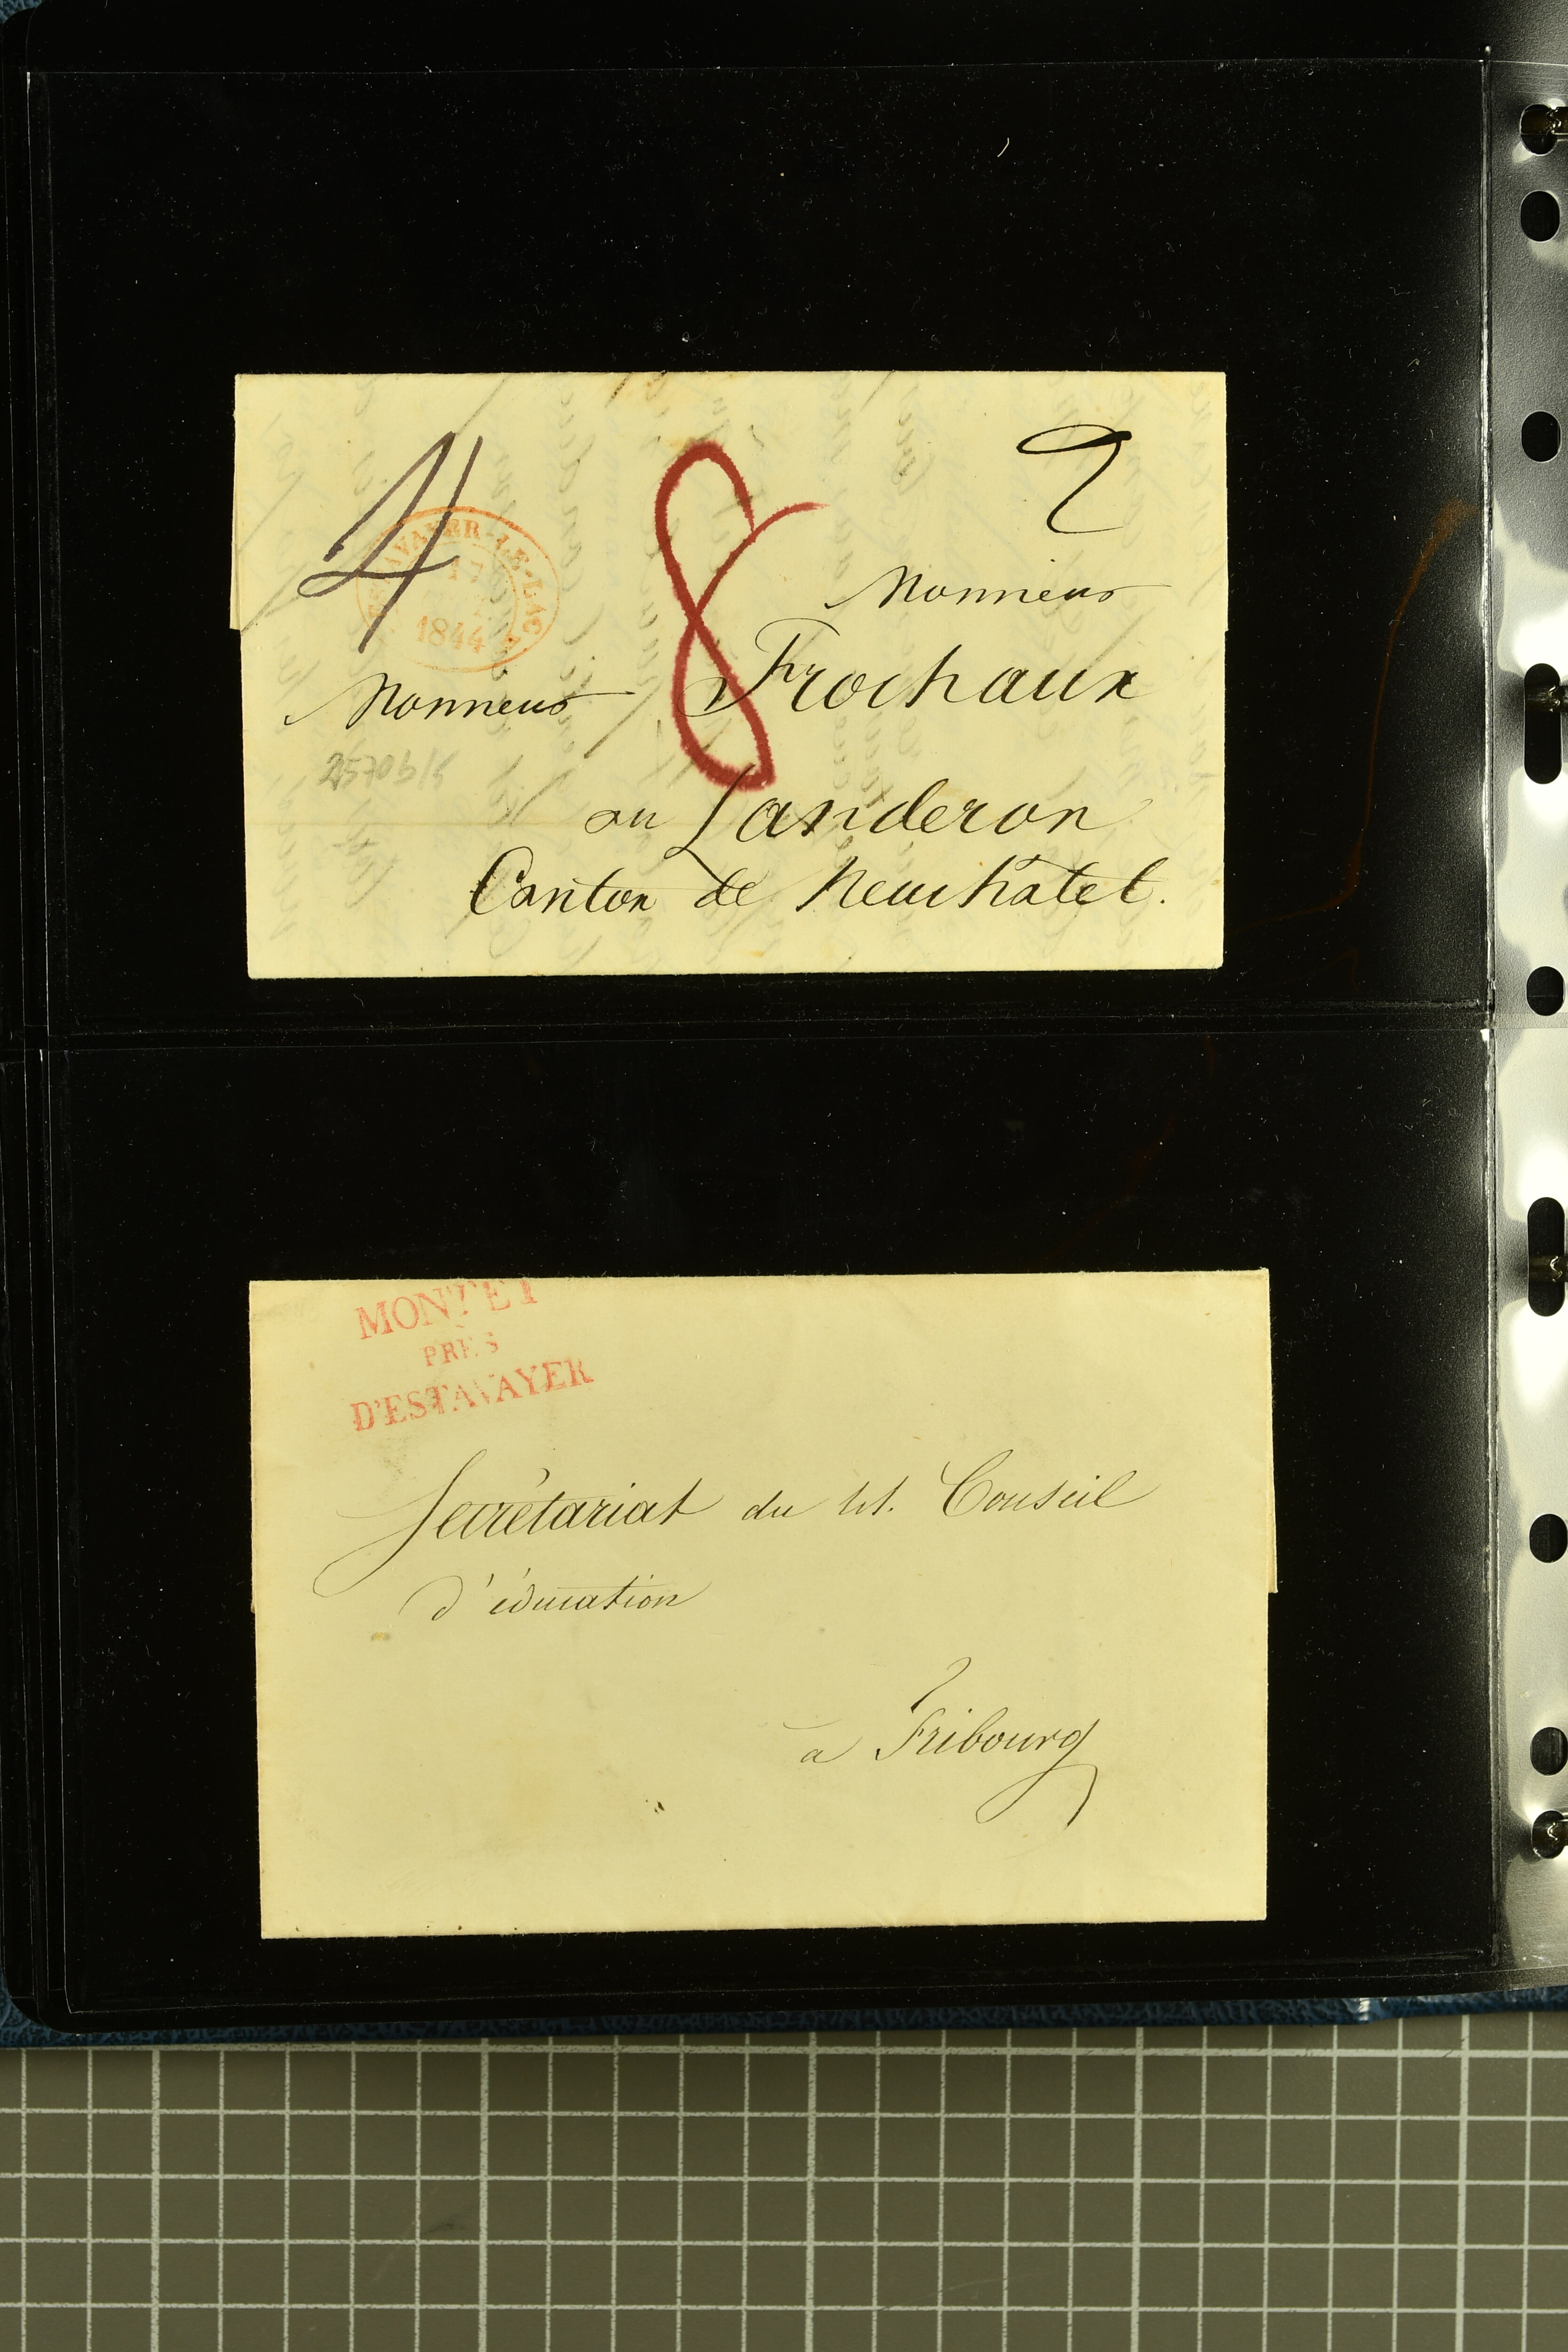 4 8 2
ESTAVAYER-LE-LAC
17
1844
Monsieur
Monsieur Frochaux
au Landeron
Canton de Neuchâtel.
MONTET
PRÈS
D'ESTAVAYER
Secrétariat du ht. Conseil
d'éducation
à Fribourg